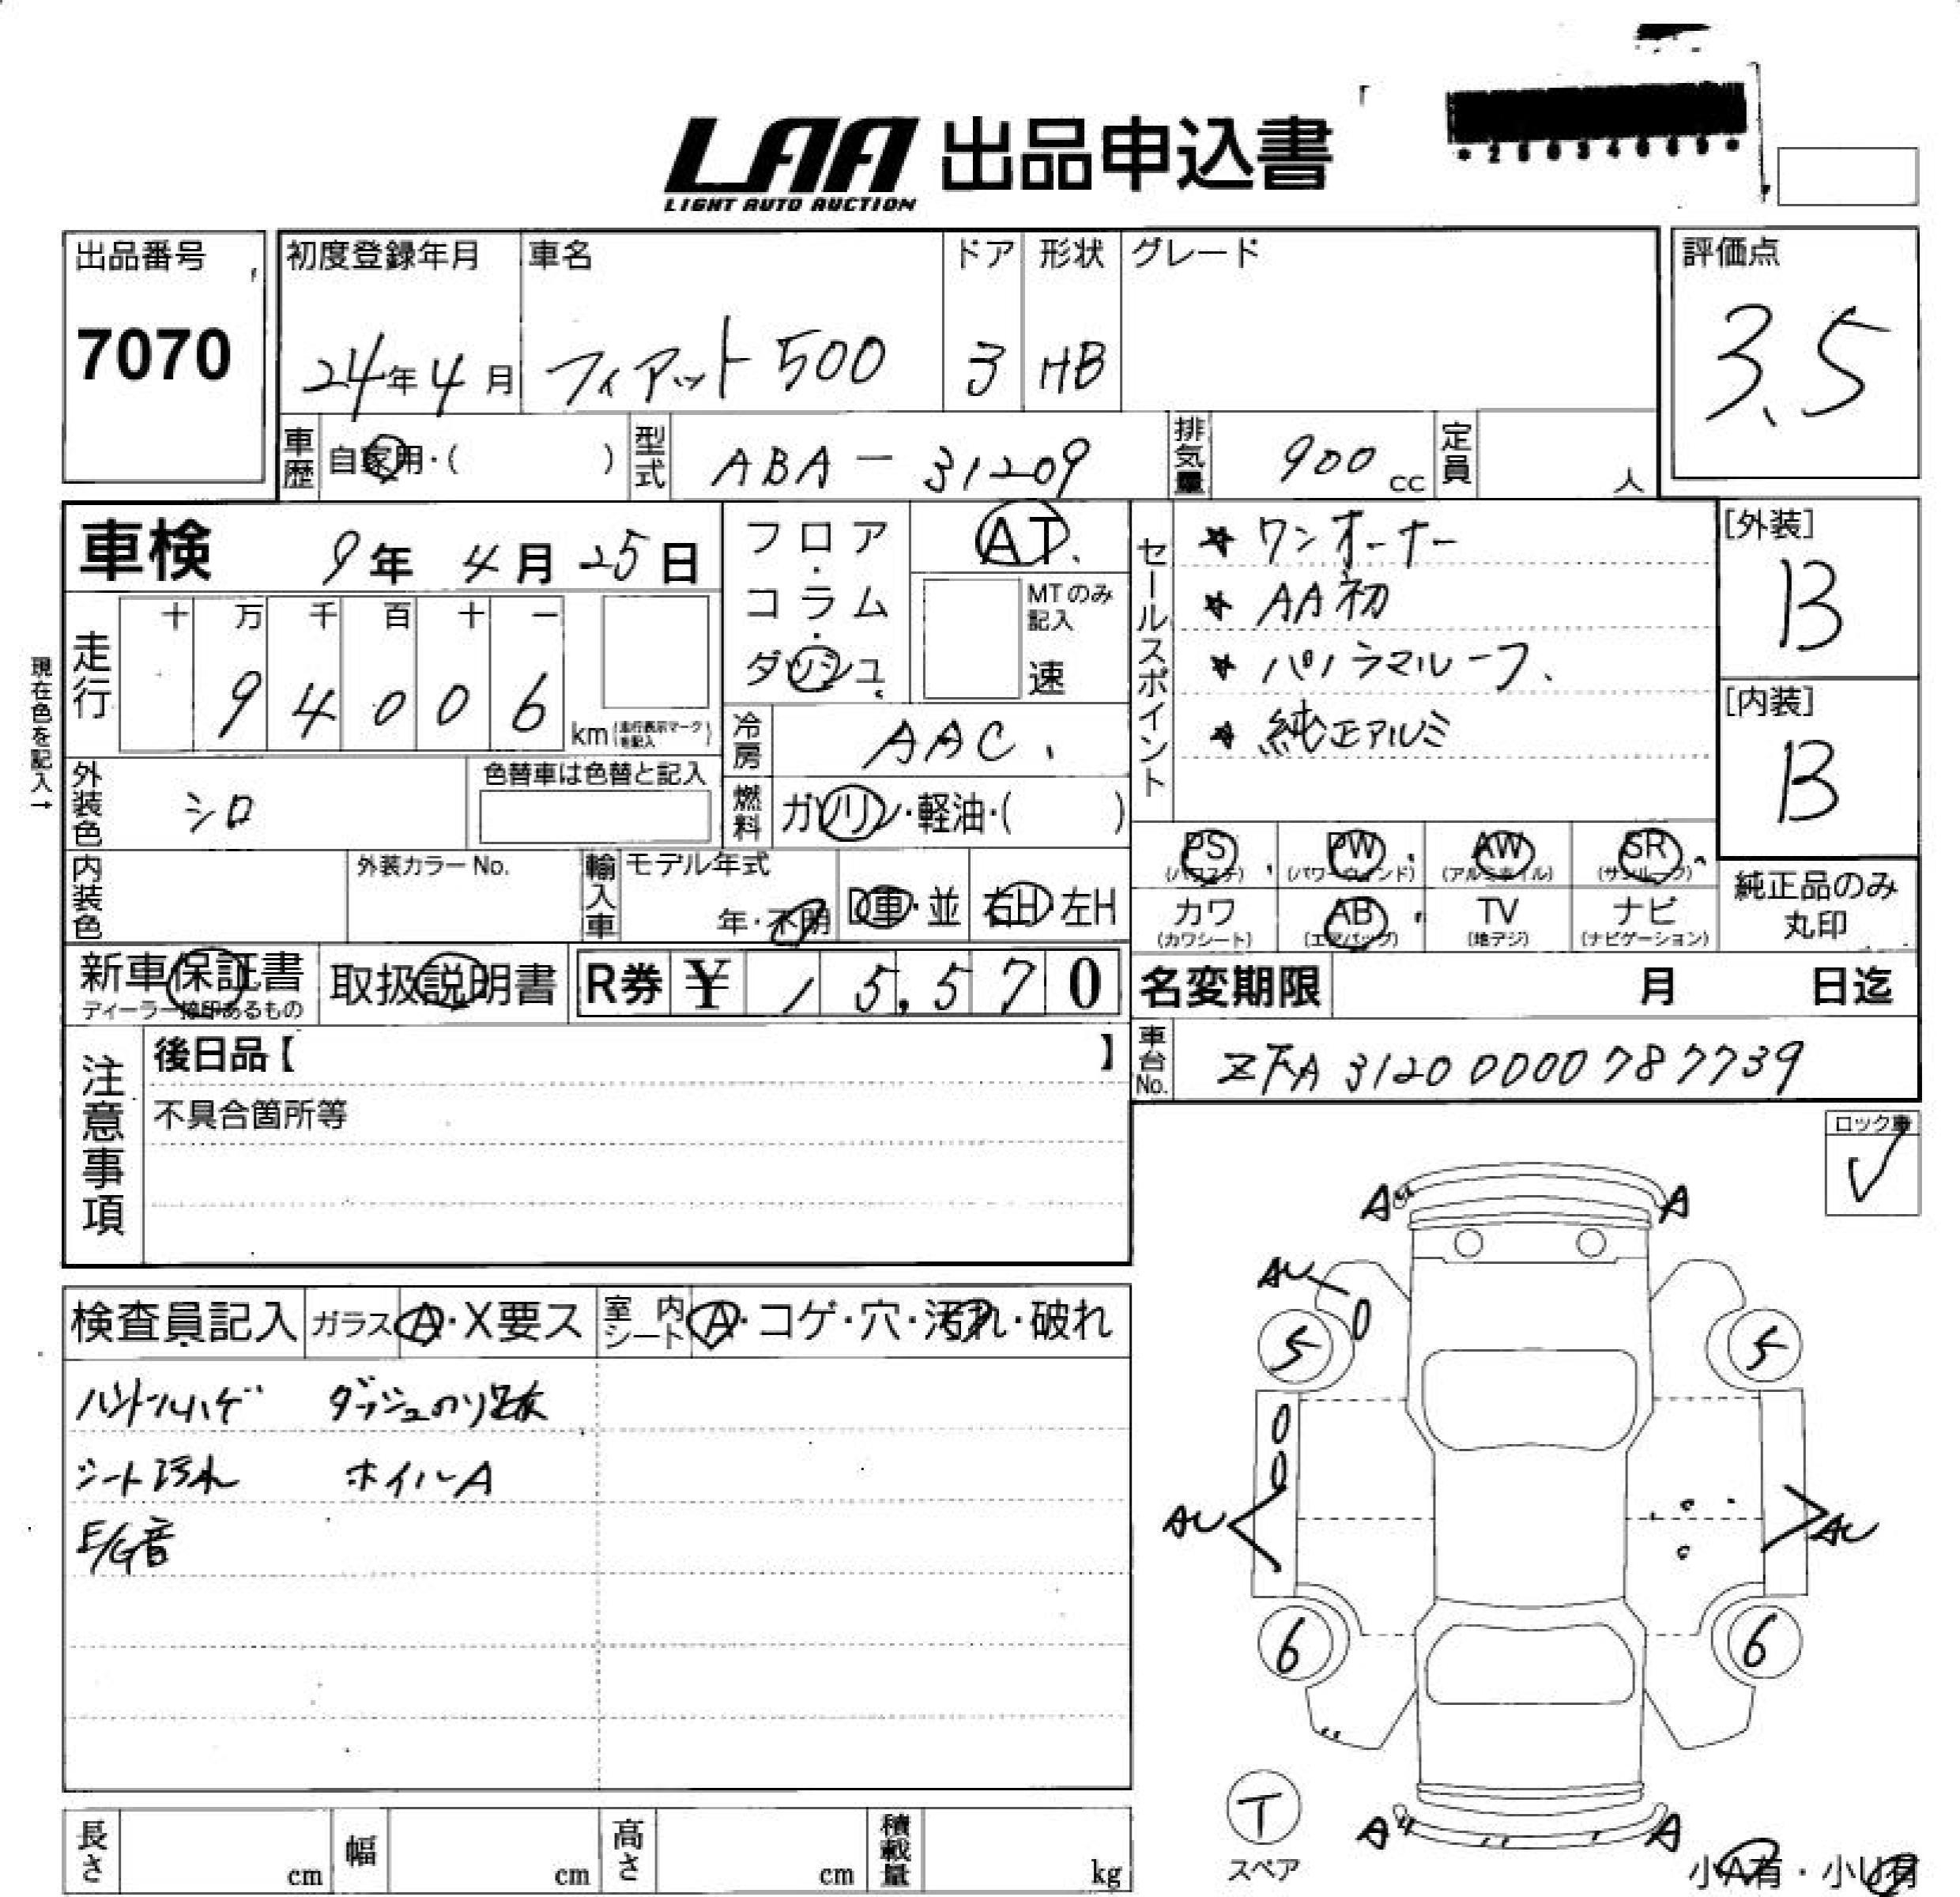 LAA 出品申込書
LIGHT AUTO AUCTION
*25034689*
出品番号
7070
初度登録年月
24年4月
車名
フィアット500
ドア
3
形状
HB
グレード
評価点
3.5
車歴
自家用・( )
型式
ABA-31209
排気量
900cc
定員
人
車検 9年4月25日
現在色を記入→
走行
十 万 千 百 十 一
9 4 0 0 6
km (走行表示マークを記入)
フロア・コラム・ダッシュ
AT
MTのみ記入
速
セールスポイント
★ワンオーナー
★AA初
★パノラマルーフ
★純正アルミ
[外装]
B
[内装]
B
外装色
シロ
色替車は色替と記入
冷房
AAC
燃料
ガソリン・軽油・( )
PS (パワステ)
PW (パワーウィンド)
AW (アルミホイル)
SR (サンルーフ)
カワ (カワシート)
AB (エアバッグ)
TV (地デジ)
ナビ (ナビゲーション)
純正品のみ丸印
内装色
外装カラーNo.
輸入車
モデル年式
年・不明
D車・並
右H・左H
新車保証書
ディーラー捺印あるもの
取扱説明書
R券 ¥ 15,570
名変期限 月 日迄
車台No.
ZFA3120 0000787739
注意事項
後日品【 】
不具合箇所等
ロック車
✓
検査員記入
ガラス A・X要ス
室内シート A・コゲ・穴・汚れ・破れ
ハンドルハゲ ダッシュのり跡
シート汚れ ホイルA
E/G音
A A
AU
5 5
AU AU
6 6
T
スペア
A A
小A有・小U有
長さ cm
幅 cm
高さ cm
積載量 kg